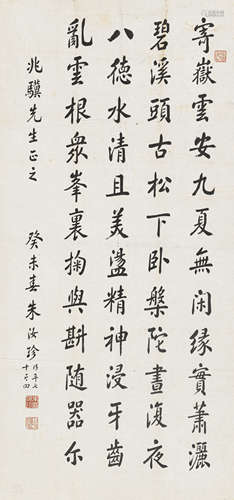 寄嶽雲安九夏無閑緣實蕭灑
碧溪頭古松下臥槃陀晝復夜
八德水清且美盪精神浸牙齒
亂雲根衆峯裏掬與斟随器尔
兆驥先生正之
癸未春朱汝珍
時年七十四